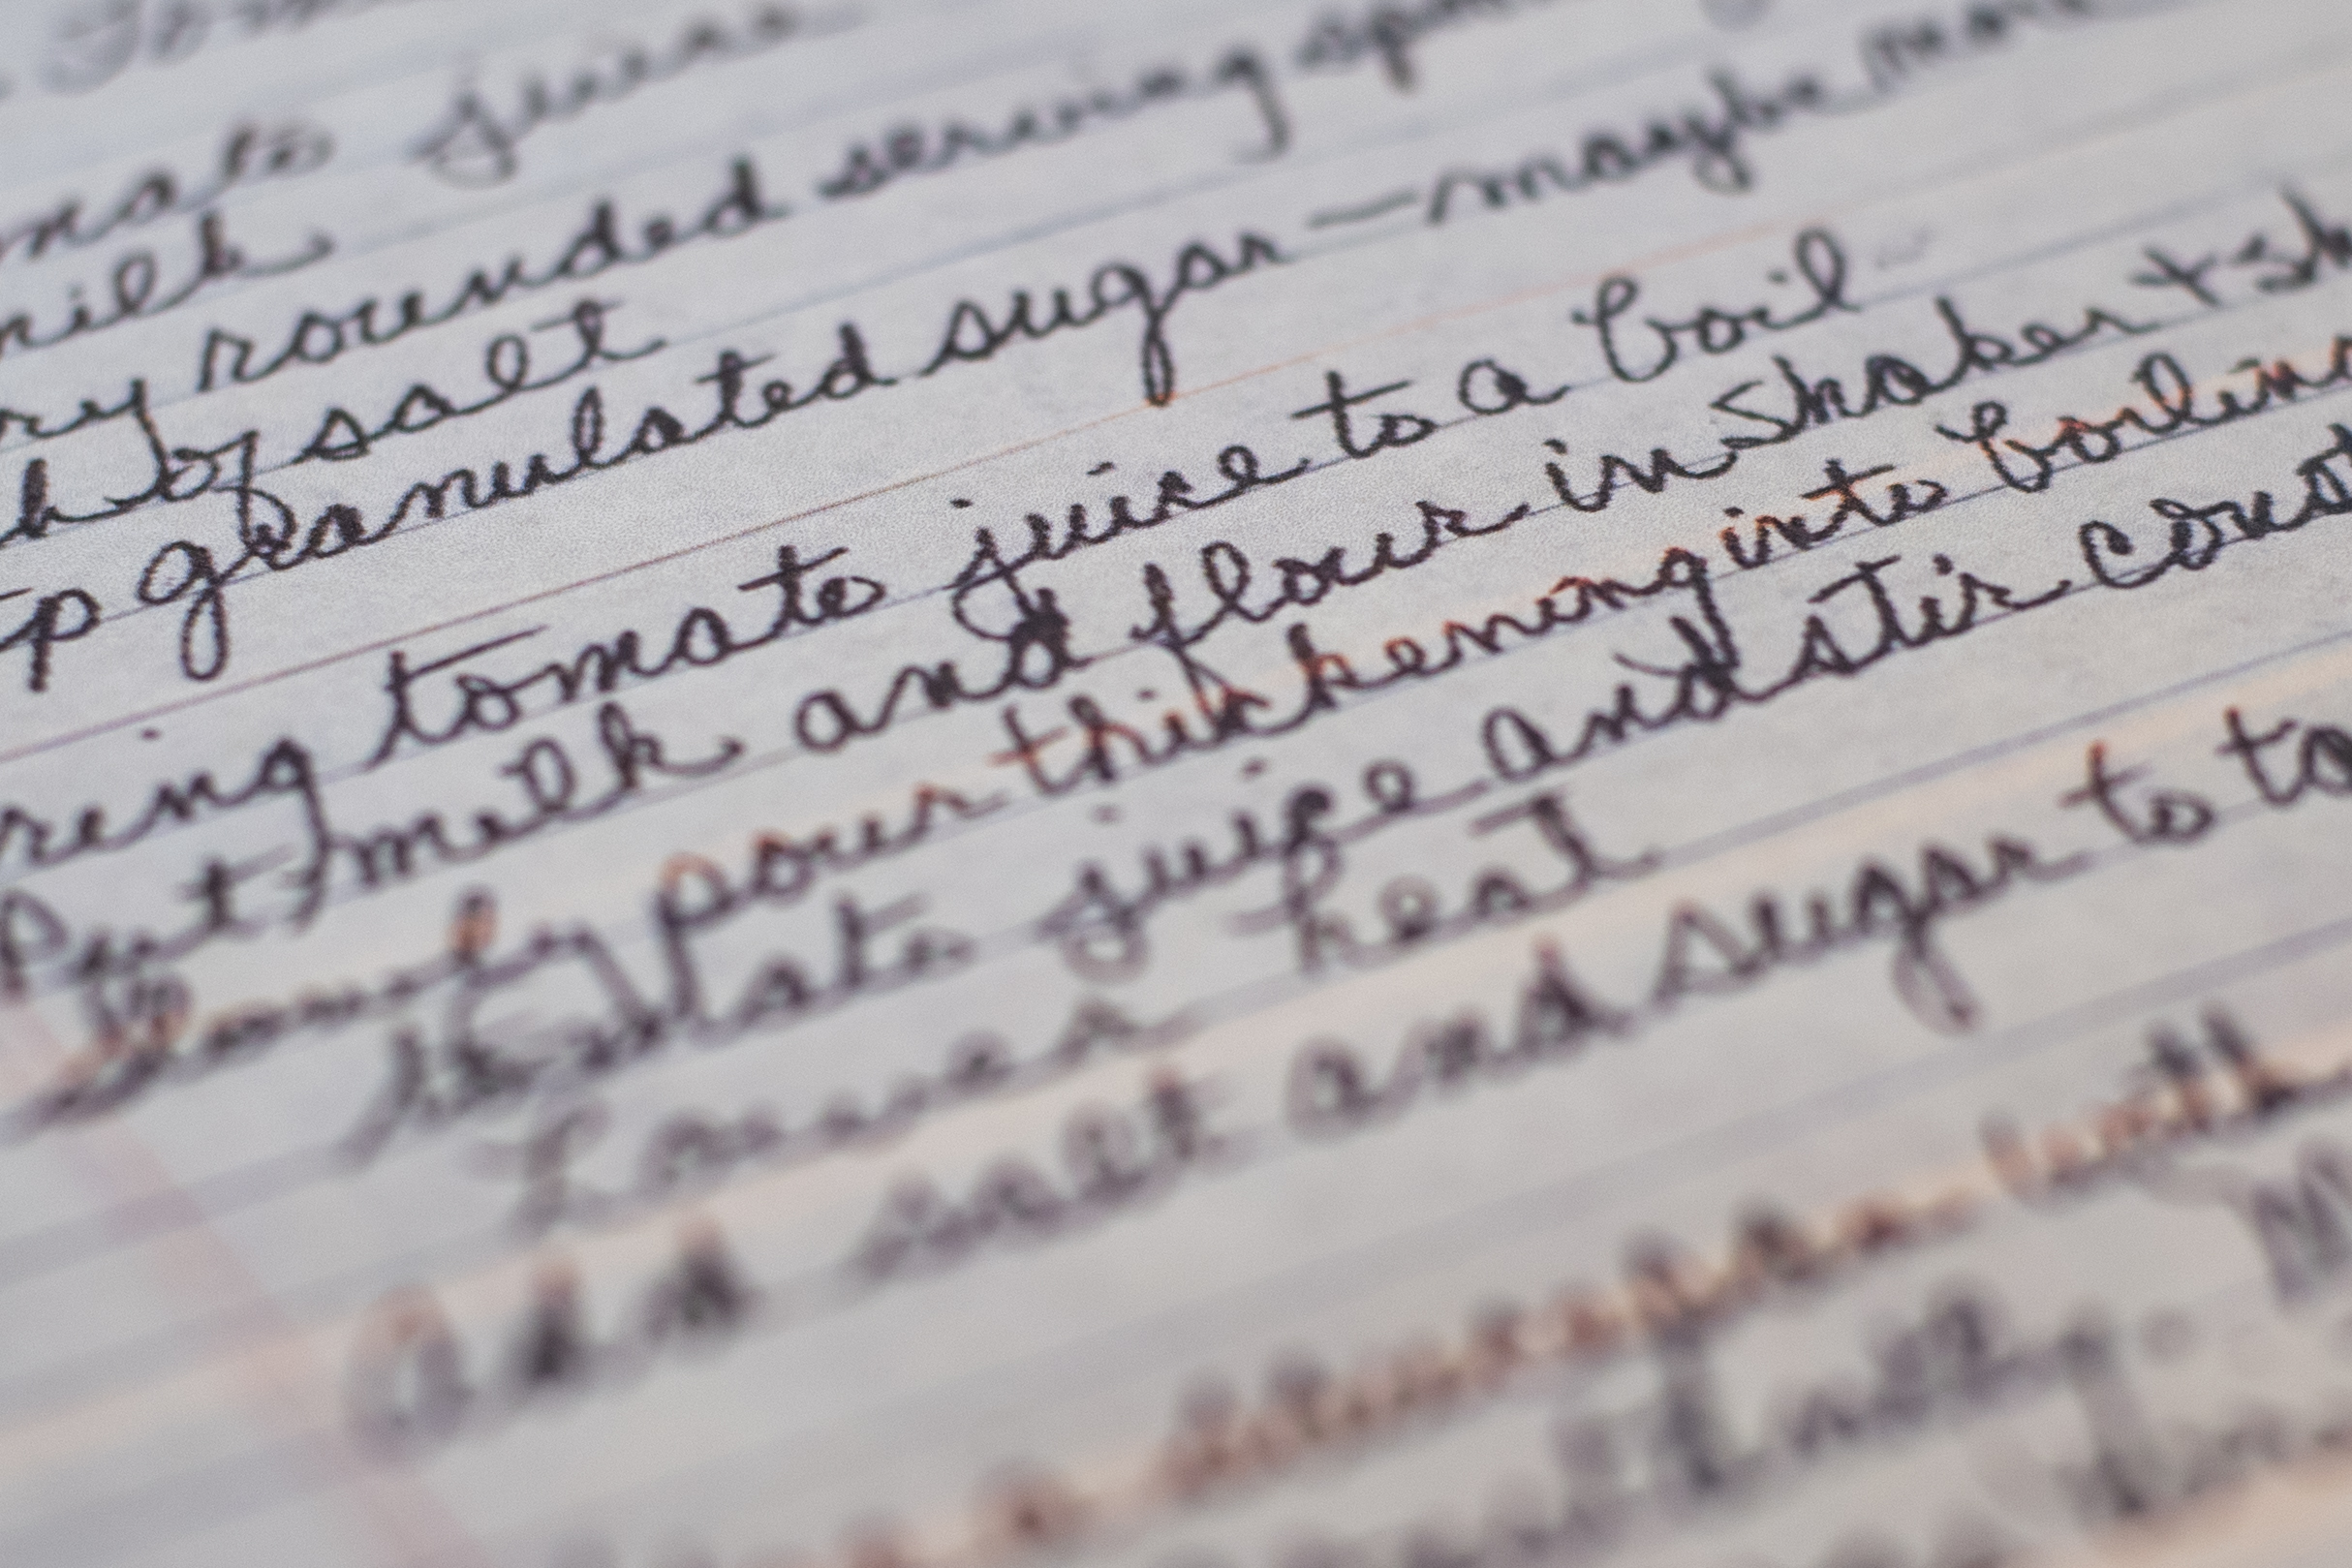 Tom
mato juice
milk
ry rounded serving sp
h of salt
p granulated sugar — maybe more
ring tomato juice to a boil
Put milk and flour in shaker + sh
pour thickening into boiling
tomato juice and stir const
Lower heat
Add salt and sugar to ta
with